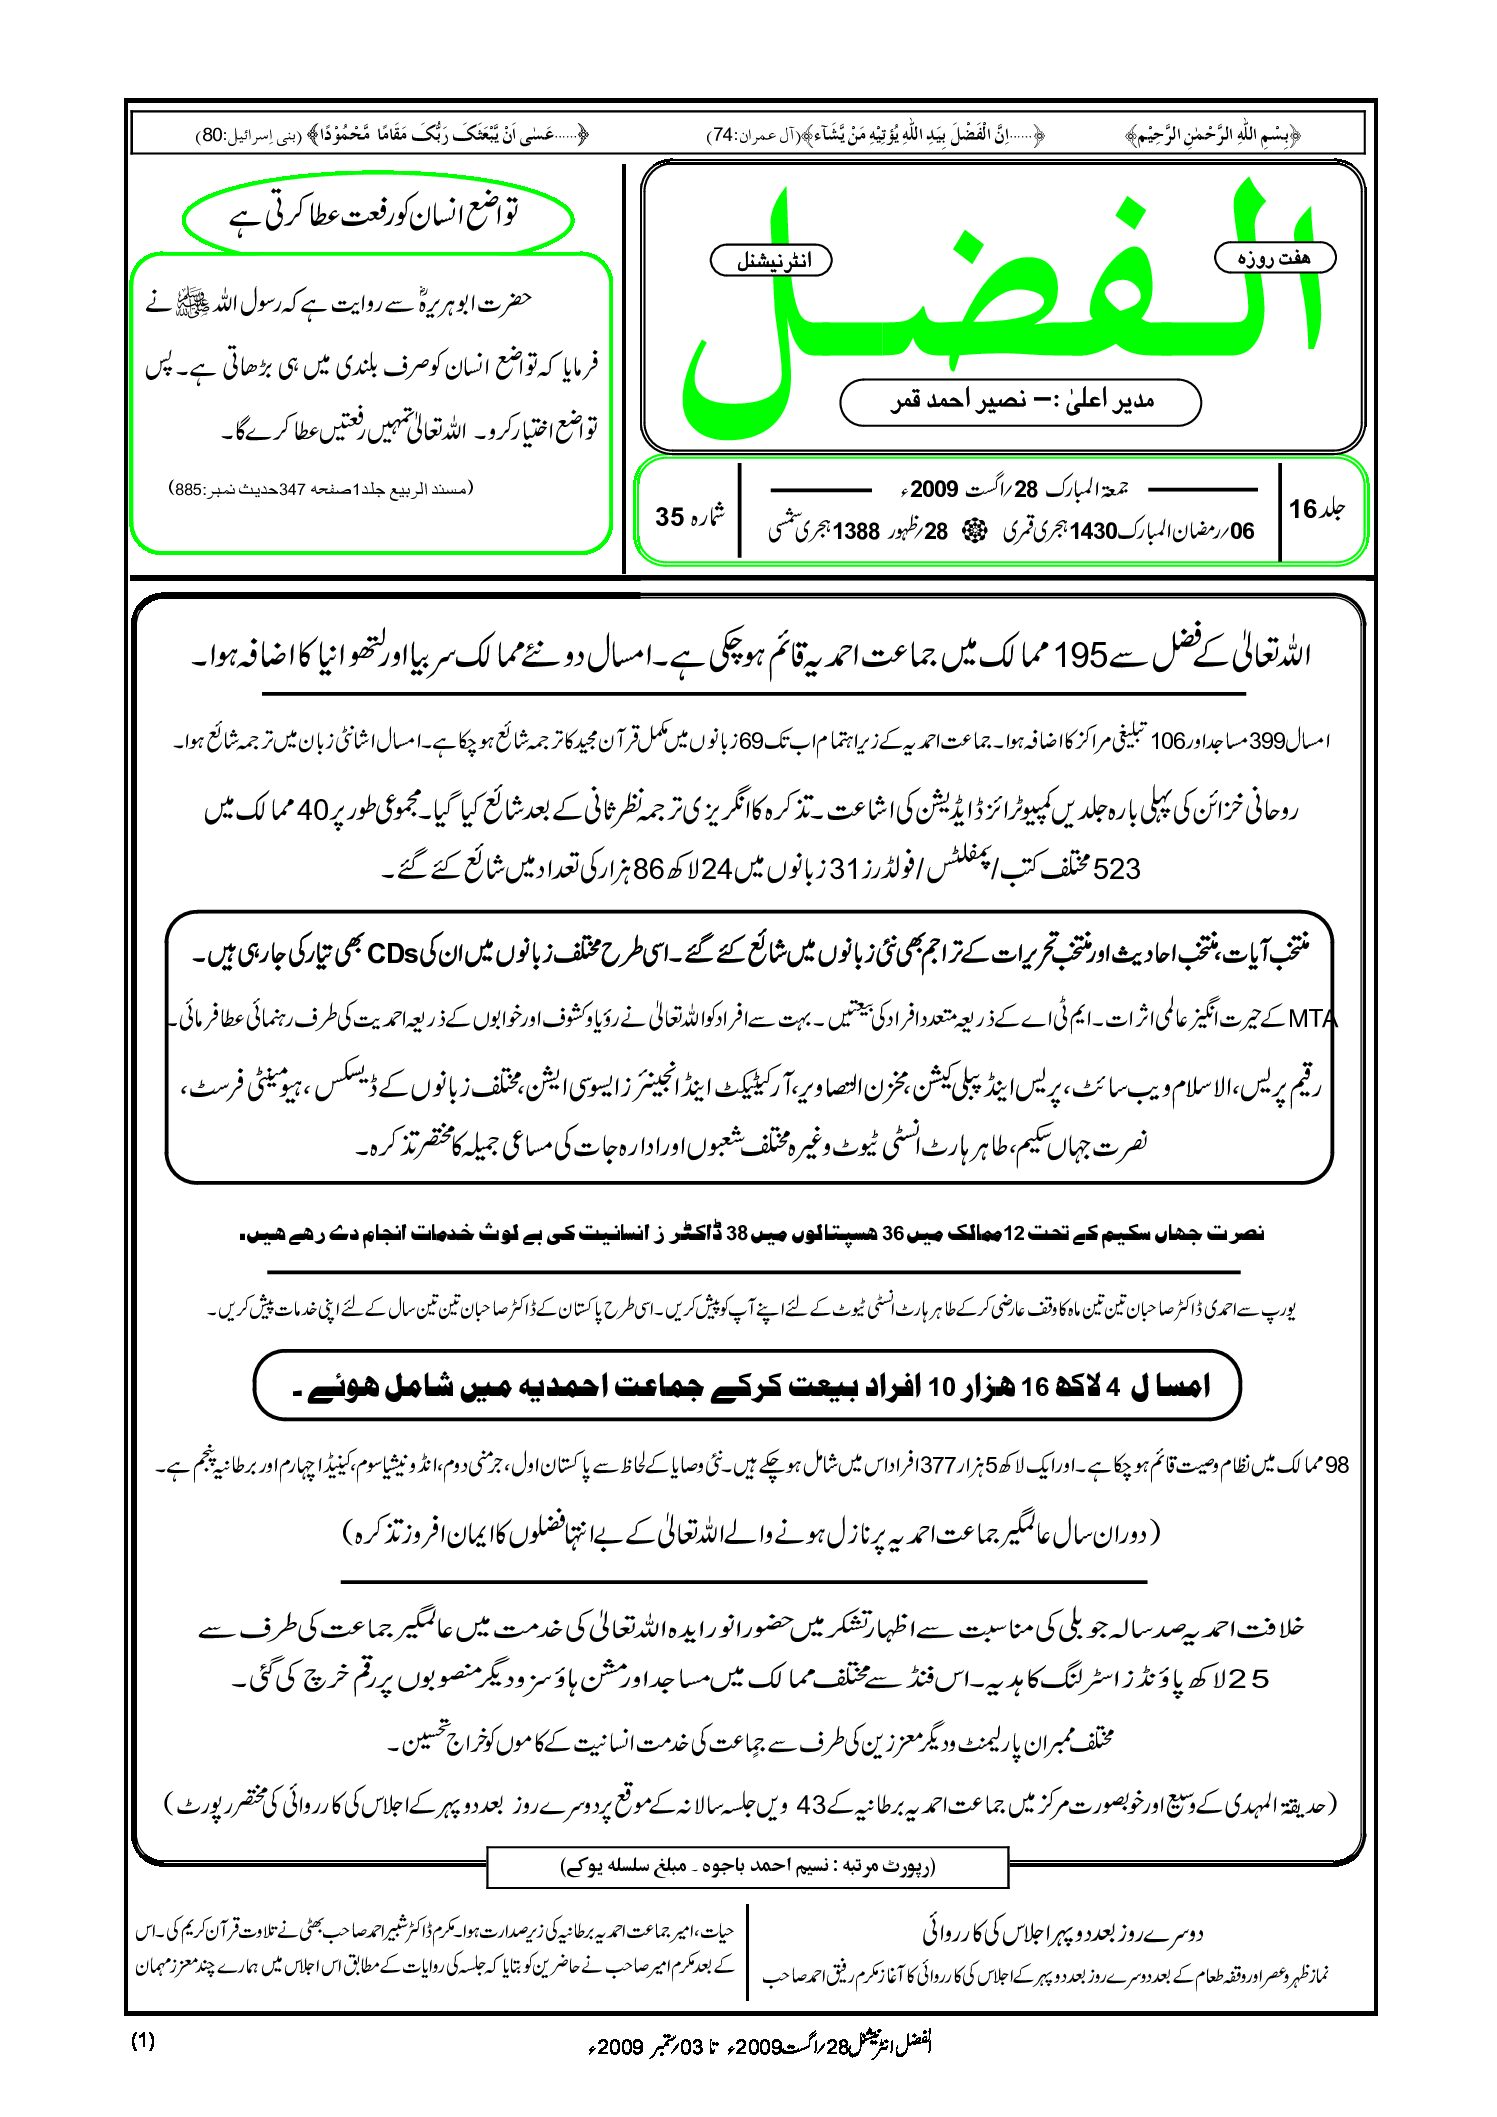 ﴿بِسْمِ اللّٰہِ الرَّحْمٰنِ الرَّحِیْمِ﴾ ﴿......اِنَّ الْفَضْلَ بِیَدِ اللّٰہِ یُؤْتِیْہِ مَنْ یَّشَآء﴾(آل عمران:74) ﴿......عَسٰی اَنْ یَّبْعَثَکَ رَبُّکَ مَقَامًا مَّحْمُوْدًا﴾ (بنی اِسرائیل:80)
ہفت روزہ
الفضل
انٹرنیشنل
مدیر اعلیٰ :– نصیر احمد قمر
جلد 16
جمعۃ المبارک 28/اگست 2009ء
06/رمضان المبارک1430 ہجری قمری 28/ظہور 1388 ہجری شمسی
شمارہ 35
تواضع انسان کو رفعت عطا کرتی ہے
حضرت ابوہریرہؓ سے روایت ہے کہ رسول اللہ ﷺ نے
فرمایا کہ تواضع انسان کو صرف بلندی میں ہی بڑھاتی ہے۔ پس
تواضع اختیار کرو۔ اللہ تعالیٰ تمہیں رفعتیں عطا کرے گا۔
(مسند الربیع جلد1صفحہ 347حدیث نمبر:885)
اللہ تعالیٰ کے فضل سے 195 ممالک میں جماعت احمدیہ قائم ہو چکی ہے۔ امسال دو نئے ممالک سربیا اور لتھوانیا کا اضافہ ہوا۔
امسال399 مساجد اور 106 تبلیغی مراکز کا اضافہ ہوا۔ جماعت احمدیہ کے زیر اہتمام اب تک 69 زبانوں میں مکمل قرآن مجید کا ترجمہ شائع ہو چکا ہے۔ امسال اشانٹی زبان میں ترجمہ شائع ہوا۔
روحانی خزائن کی پہلی بارہ جلدیں کمپیوٹرائزڈ ایڈیشن کی اشاعت ۔ تذکرہ کا انگریزی ترجمہ نظر ثانی کے بعد شائع کیا گیا۔ مجموعی طور پر 40 ممالک میں
523 مختلف کتب/پمفلٹس/فولڈرز 31 زبانوں میں 24 لاکھ 86 ہزار کی تعداد میں شائع کئے گئے۔
منتخب آیات، منتخب احادیث اور منتخب تحریرات کے تراجم بھی نئی زبانوں میں شائع کئے گئے۔ اسی طرح مختلف زبانوں میں ان کی CDs بھی تیار کی جارہی ہیں۔
MTA کے حیرت انگیز عالمی اثرات۔ ایم ٹی اے کے ذریعہ متعدد افراد کی بیعتیں ۔ بہت سے افراد کو اللہ تعالیٰ نے رؤیا و کشوف اور خوابوں کے ذریعہ احمدیت کی طرف رہنمائی عطا فرمائی۔
رقیم پریس، الاسلام ویب سائٹ، پریس اینڈ پبلی کیشن، مخزن التصاویر، آرکیٹیکٹ اینڈ انجینئرز ایسوسی ایشن، مختلف زبانوں کے ڈیسکس ، ہیومینٹی فرسٹ،
نصرت جہاں سکیم، طاہر ہارٹ انسٹی ٹیوٹ وغیرہ مختلف شعبوں اور ادارہ جات کی مساعی جمیلہ کا مختصر تذکرہ۔
نصرت جہاں سکیم کے تحت 12 ممالک میں 36 ہسپتالوں میں 38 ڈاکٹرز انسانیت کی بے لوث خدمات انجام دے رہے ہیں۔
یورپ سے احمدی ڈاکٹر صاحبان تین تین ماہ کا وقف عارضی کر کے طاہر ہارٹ انسٹی ٹیوٹ کے لئے اپنے آپ کو پیش کریں۔ اسی طرح پاکستان کے ڈاکٹر صاحبان تین تین سال کے لئے اپنی خدمات پیش کریں۔
امسال 4 لاکھ 16 ہزار 10 افراد بیعت کرکے جماعت احمدیہ میں شامل ہوئے ۔
98 ممالک میں نظام وصیت قائم ہو چکا ہے۔ اور ایک لاکھ 5 ہزار 377 افراد اس میں شامل ہو چکے ہیں۔ نئی وصایا کے لحاظ سے پاکستان اول، جرمنی دوم، انڈونیشیا سوم، کینیڈا چہارم اور برطانیہ پنجم ہے۔
(دوران سال عالمگیر جماعت احمدیہ پر نازل ہونے والے اللہ تعالیٰ کے بے انتہا فضلوں کا ایمان افروز تذکرہ)
خلافت احمدیہ صد سالہ جوبلی کی مناسبت سے اظہار تشکر میں حضور انور ایدہ اللہ تعالیٰ کی خدمت میں عالمگیر جماعت کی طرف سے
25 لاکھ پاؤنڈز اسٹرلنگ کا ہدیہ۔ اس فنڈ سے مختلف ممالک میں مساجد اور مشن ہاؤسز و دیگر منصوبوں پر رقم خرچ کی گئی۔
مختلف ممبران پارلیمنٹ و دیگر معززین کی طرف سے جماعت کی خدمت انسانیت کے کاموں کو خراج تحسین۔
(حدیقۃ المہدی کے وسیع اور خوبصورت مرکز میں جماعت احمدیہ برطانیہ کے 43 ویں جلسہ سالانہ کے موقع پر دوسرے روز بعد دوپہر کے اجلاس کی کارروائی کی مختصر رپورٹ)
(رپورٹ مرتبہ : نسیم احمد باجوہ ۔ مبلغ سلسلہ یوکے)
دوسرے روز بعد دوپہر اجلاس کی کارروائی
نماز ظہر و عصر اور وقفہ طعام کے بعد دوسرے روز بعد دوپہر کے اجلاس کی کارروائی کا آغاز مکرم رفیق احمد صاحب
حیات، امیر جماعت احمدیہ برطانیہ کی زیر صدارت ہوا۔ مکرم ڈاکٹر شبیر احمد صاحب بھٹی نے تلاوت قرآن کریم کی۔ اس
کے بعد مکرم امیر صاحب نے حاضرین کو بتایا کہ جلسہ کی روایات کے مطابق اس اجلاس میں ہمارے چند معزز مہمان
الفضل انٹرنیشنل 28/اگست2009ء تا 03/ستمبر 2009ء
(1)